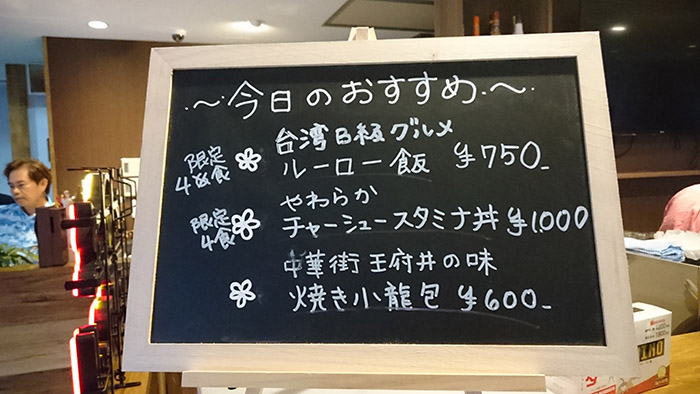 ～今日のおすすめ～
台湾B級グルメ
限定
4食
ルーロー飯 ¥750-
やわらか
限定
4食
チャーシュースタミナ丼 ¥1.000
中華街 王府井の味
焼き小龍包 ¥600-